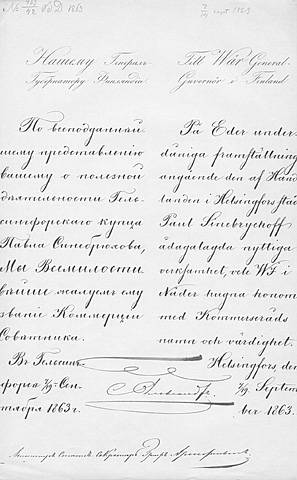 1863
Нашему Генералъ-
Губернатору Финляндіи
По всеподданнѣй-
шему представленію
вашему о полезной
дѣятельности Гель-
сингфорсскаго купца
Павла Синебрюхова,
Мы Всемилости
вѣйше жалуемъ ему
званіе Коммерціи
Совѣтника.
Въ Гельсинг-
форсѣ 7/19 Сен-
тября 1863 г.
Till Wår General-
Guvernör i Finland
På Eder under-
dåniga framställning
angående den af Hand
landen i Helsingfors stad
Paul Sinebrychoff
ådagalagda nyttiga
verksamhet, vele Wi i
Nåder hugna honom
med Kommerseråds
namn och värdighet.
Helsingfors, den
7/19 Septem
ber 1863.
Александръ
Министръ Статсъ-Секретарь Графъ Армфельтъ